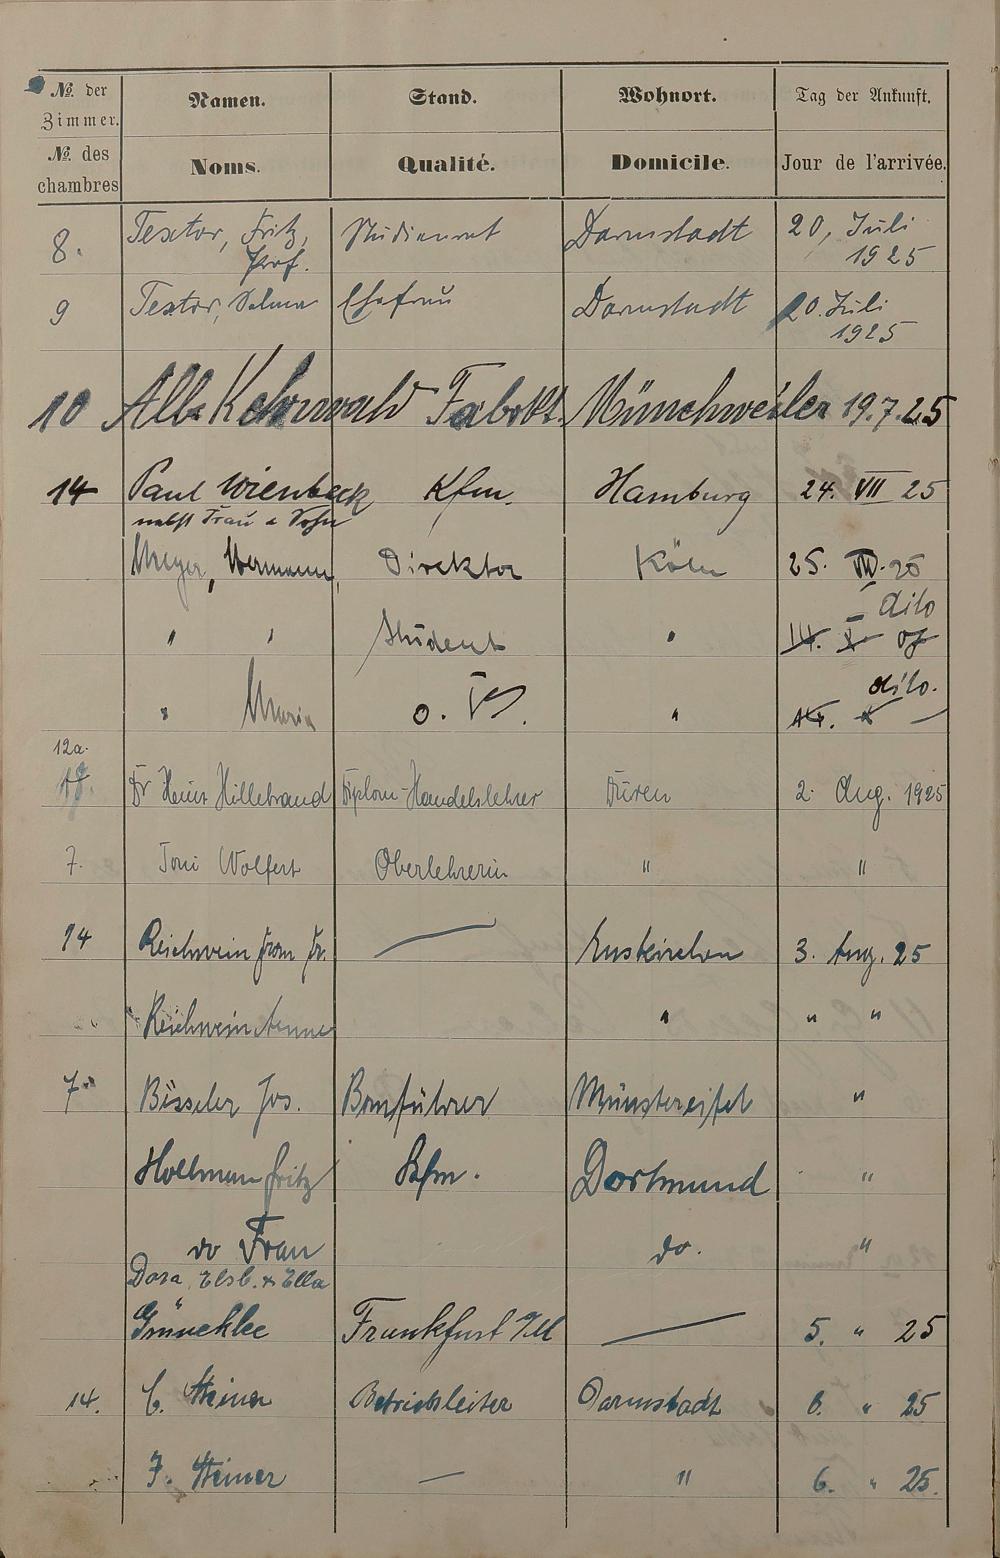 № der Zimmer. Namen. Stand. Wohnort. Tag der Ankunft.
№ des chambres Noms. Qualité. Domicile. Jour de l'arrivée.
8. Textor, Fritz, Prof. Studienrat Darmstadt 20, Juli 1925
9 Textor, Selma Ehefrau Darmstadt 20. Juli 1925
10 Alb. Kehrwald Fabrkt. Münchweiler 19.7.25
14 Paul Wienbeck Kfm. Hamburg 24. VII 25
nebst Frau u Sohn
Meyer, Hermann, Direktor Köln 25. VII. 25
dito
" " Student "
dito.
" Maria o. "
12a.
Dr Heinr Hillebrand Diplom-Handelslehrer Düren 2. Aug. 1925
7. Toni Wolfert Oberlehrerin " "
14 Reichwein Euskirchen 3. Aug. 25
Reichwein Aenne " " "
7 Jos. Münstereifel "
Hollmann Fritz Kfm. Dortmund "
do Frau do. "
Dora, Elsb. & Ella
Grüneklee Frankfurt a/M — 5. " 25
14. C. Steiner Betriebsleiter Darmstadt 6. " 25
F. Steiner — " 6. " 25.